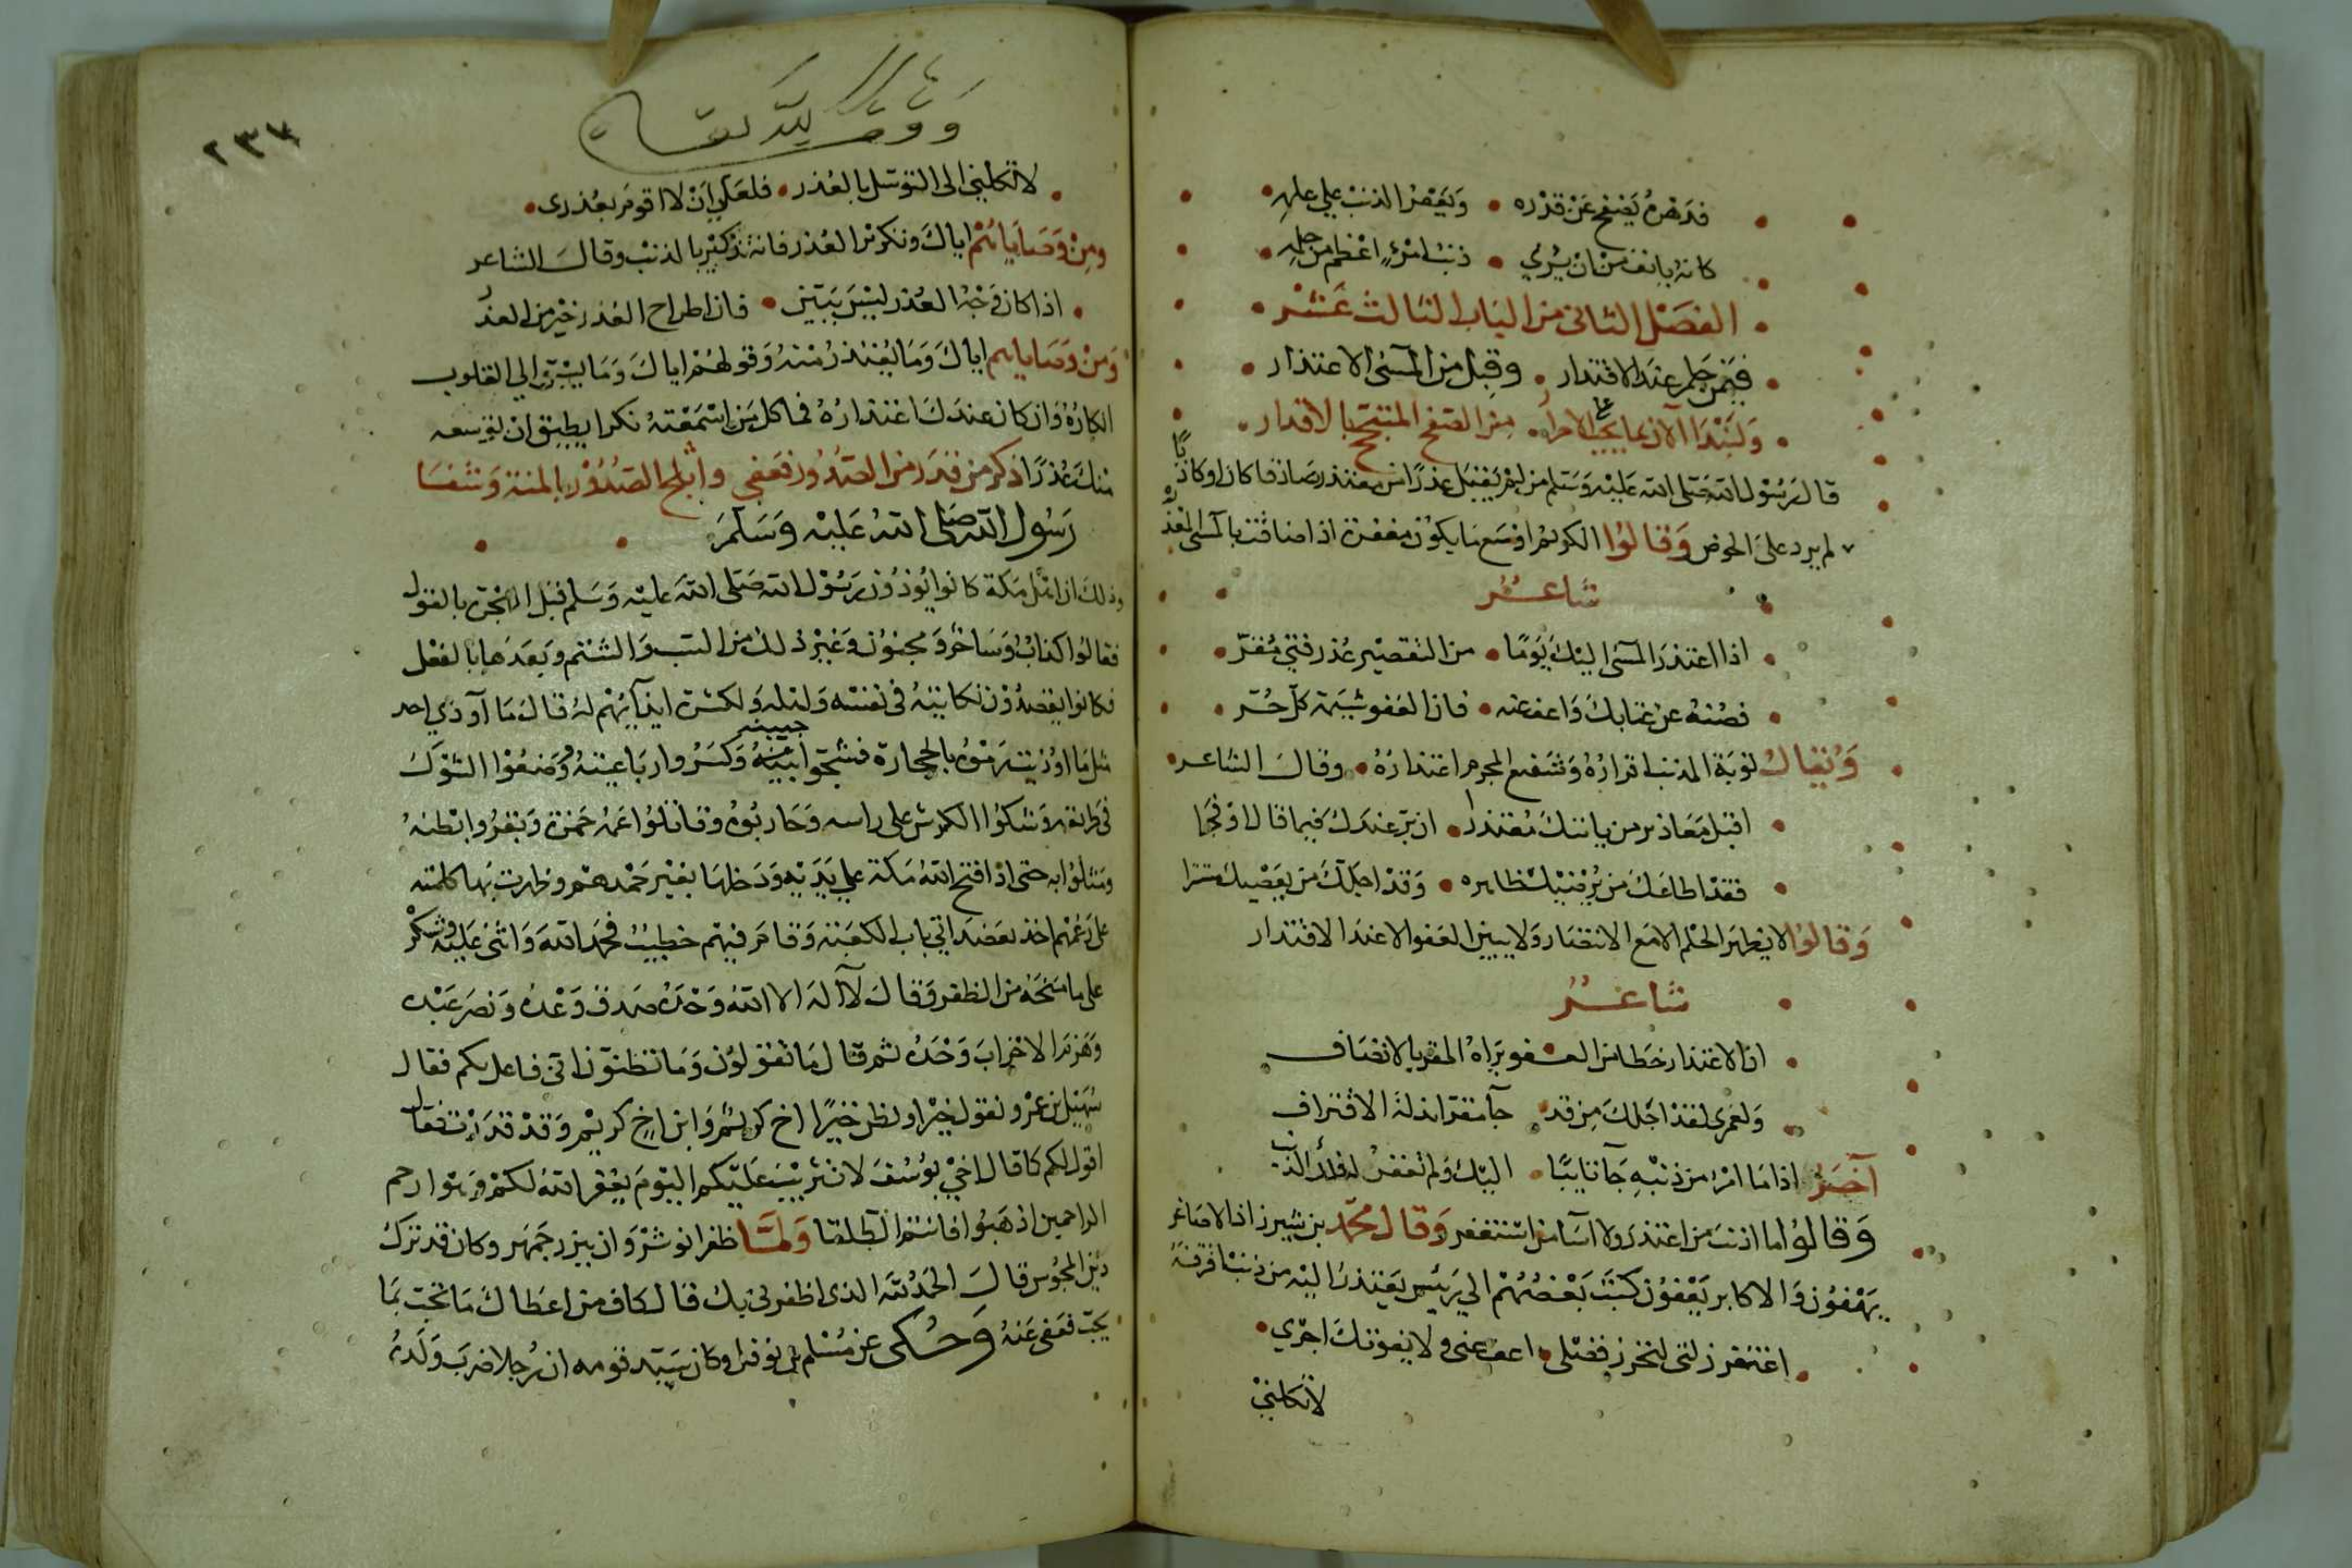 قدره يصفح عن قدره • ويغفر الذنب على علمه •
كانه يانف من ان يرى • ذنب امرئ اعظم من حلمه •
الفصل الثانى من الباب الثالث عشر •
فيمن حلم عند الاقتدار • وقبل من المسئ الاعتذار •
ولنبدا الآن بما يجب على الاحرار • من الصفح المتنقح بالاقدار •
قال رسول الله صلى الله عليه وسلم من لم يقبل عذرا من معتذر صادقا كان او كاذبًا
لم يرد على الحوض وقالوا الكريم اوسع ما يكون مغفرة اذا ضاقت بالمسئ المعذرة
شاعر
• اذا اعتذر المسئ اليك يومًا • من التقصير عذر فتى مقرّ •
• فصنه عن عتابك واعف عنه • فان العفو شيمة كلّ حُرّ •
ويقال توبة المذنب اقراره وشفيع المجرم اعتذاره • وقال الشاعر •
• اقبل معاذير من ياتيك معتذرا • ان برّ عندك فيما قال او فجرا
• فقد اطاعك من يرضيك ظاهره • وقد اجلّك من يعصيك مستترا
وقالوا لا يظهر الحلم الا مع الانتصار ولا يبين العفو الا عند الاقتدار
شاعر
• ان الاعتذار خطا من العفو يراه المقر بالانصاف
• ولعمرى لقد اجلك من قد • جآ مقرا بذلة الاقتراف
آخر اذا ما امرؤ من ذنبه جآ تايبًا • اليك ولم تغفر له فلك الذنب
وقالوا ما اذنب من اعتذر ولا اسآ من استغفر وقال محمد بن شيرزاذ الاصاغر
يهفون والاكابر يعفون كتب بعضهم الى رئيس يعتذر اليه من ذنب اقرفه
• اغتفر زلتى لتحرز فضلى • اعف عنى ولا يفوتك اجرى •
لا تكلني
وقف لله تعالى
٢٣٧
• لا تكلني الى التوسّل بالعذر • فلعلي ان لا اقوم بعذرى •
ومن وصاياهم اياك وتكرير العذر فانه تذكير بالذنب وقال الشاعر
• اذا كان وجه العذر ليس ببيّن • فان اطراح العذر خير من العذر
ومن وصاياهم اياك وما يعتذر منه وقولهم اياك وما يسبق الى القلوب
انكاره وان كان عندك اعتذاره فما كل من اسمعته نكرا يطيق ان توسعه
منك عذرًا ذكر من قدر من الصدور فعفى واثلج الصدور بالمنة وشفا
رسول الله صلى الله عليه وسلم •
وذلك ان اهل مكة كانوا يوذون رسول الله صلى الله عليه وسلم قبل الهجرة بالقول
فقالوا كذاب وساحر ومجنون وغير ذلك من السب والشتم وبعدها بالفعل
فكانوا يقصدون نكايته في نفسه واهله ولكثرة ايذآئهم له قال ما آوذي احد
مثل ما اوذيت رموه بالحجارة فشجّوا جبينه وكسروا رباعيته ووضعوا الشوك
في طريقه وشكوا الكرش على راسه وحاربوه وقاتلوا عمه حمزة وبقروا بطنه
ومثلوا به حتى اذا فتح الله مكة على يديه ودخلها بغير حمدهم وظهرت بها كلمته
على رغمهم اخذ بعضد اتي باب الكعبة وقام فيهم خطيبًا فحمد الله واثنى عليه وشكر
على ما منحه من الظفر وقال لا آله الا الله وحده صدق وعده ونصر عبده
وهزم الاحزاب وحده ثم قال ما تقولون وما تظنون انى فاعل بكم فقال
سهيل بن عمرو نقول خيرا ونظن خيرًا اخ كريم وابن اخ كريم وقد قدرت فقال
اقول لكم كما قال اخي يوسف لا تثريب عليكم اليوم يغفر الله لكم وهو ارحم
الراحمين اذهبوا فانتم الطلقا ولما ظفر انوشروان ببزرجمهر وكان قد ترك
دين المجوس قال الحمد لله الذى اظفرنى بك قال كاف من اعطاك ما تحب بما
يحب فعفى عنه وحكى عن مسلم بن نوفل وكان سيد قومه ان رجلا ضرب ولده